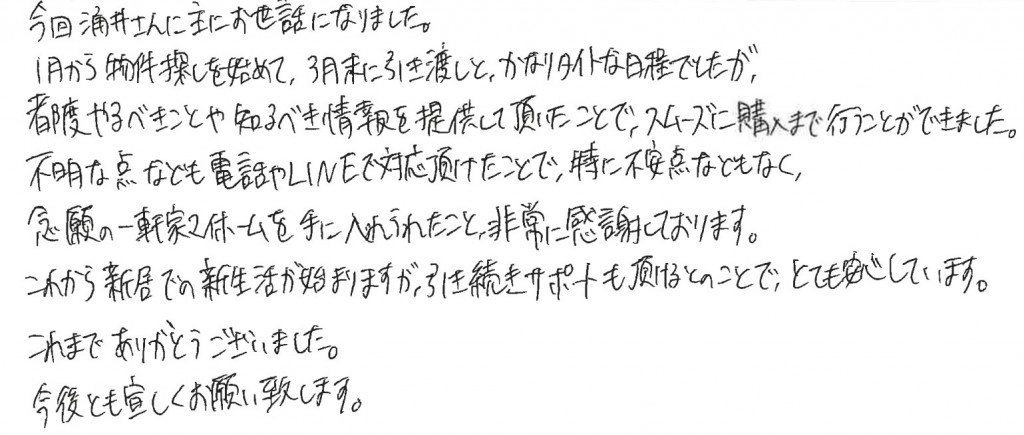 今回涌井さんに主にお世話になりました。
1月から物件探しを始めて、3月末に引き渡しと、かなりタイトな日程でしたが、
都度やるべきことや知るべき情報を提供して頂いたことで、スムーズに購入まで行うことができました。
不明な点なども電話やLINEで対応頂けたことで、特に不安点などもなく、
念願の一軒家マイホームを手に入れられたこと、非常に感謝しております。
これから新居での新生活が始まりますが、引き続きサポートも頂けるとのことで、とても安心しています。
これまでありがとうございました。
今後とも宜しくお願い致します。